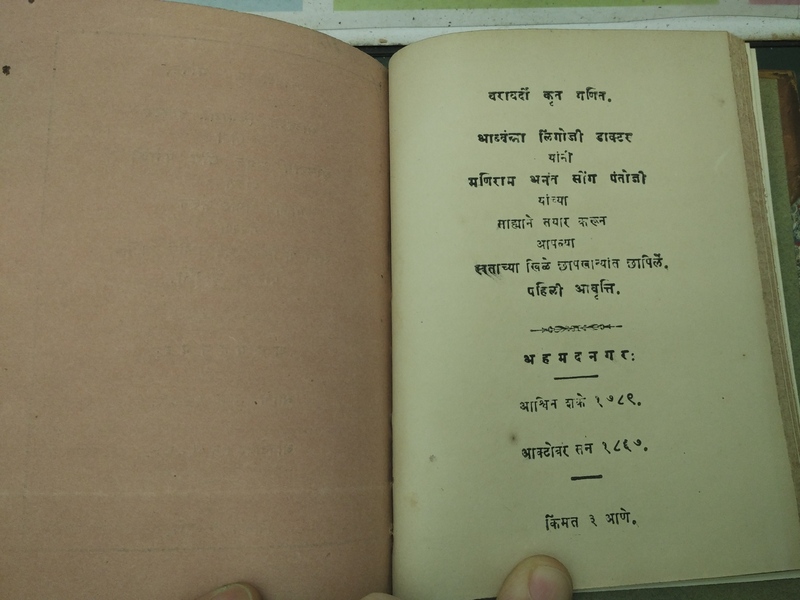 कृत गणित.
लिंगोजी डाक्टर
यांनी
मणिराम अनंत सींग पंतोजी
यांच्या
साह्याने तयार करून
आपल्या
स्वताच्या खिळे छापखान्यांत छापिलें.
पहिली आवृत्ति.
अहमदनगर:
आश्विन शके १७८९.
आक्टोबर सन १८६७.
किंमत ३ आणे.